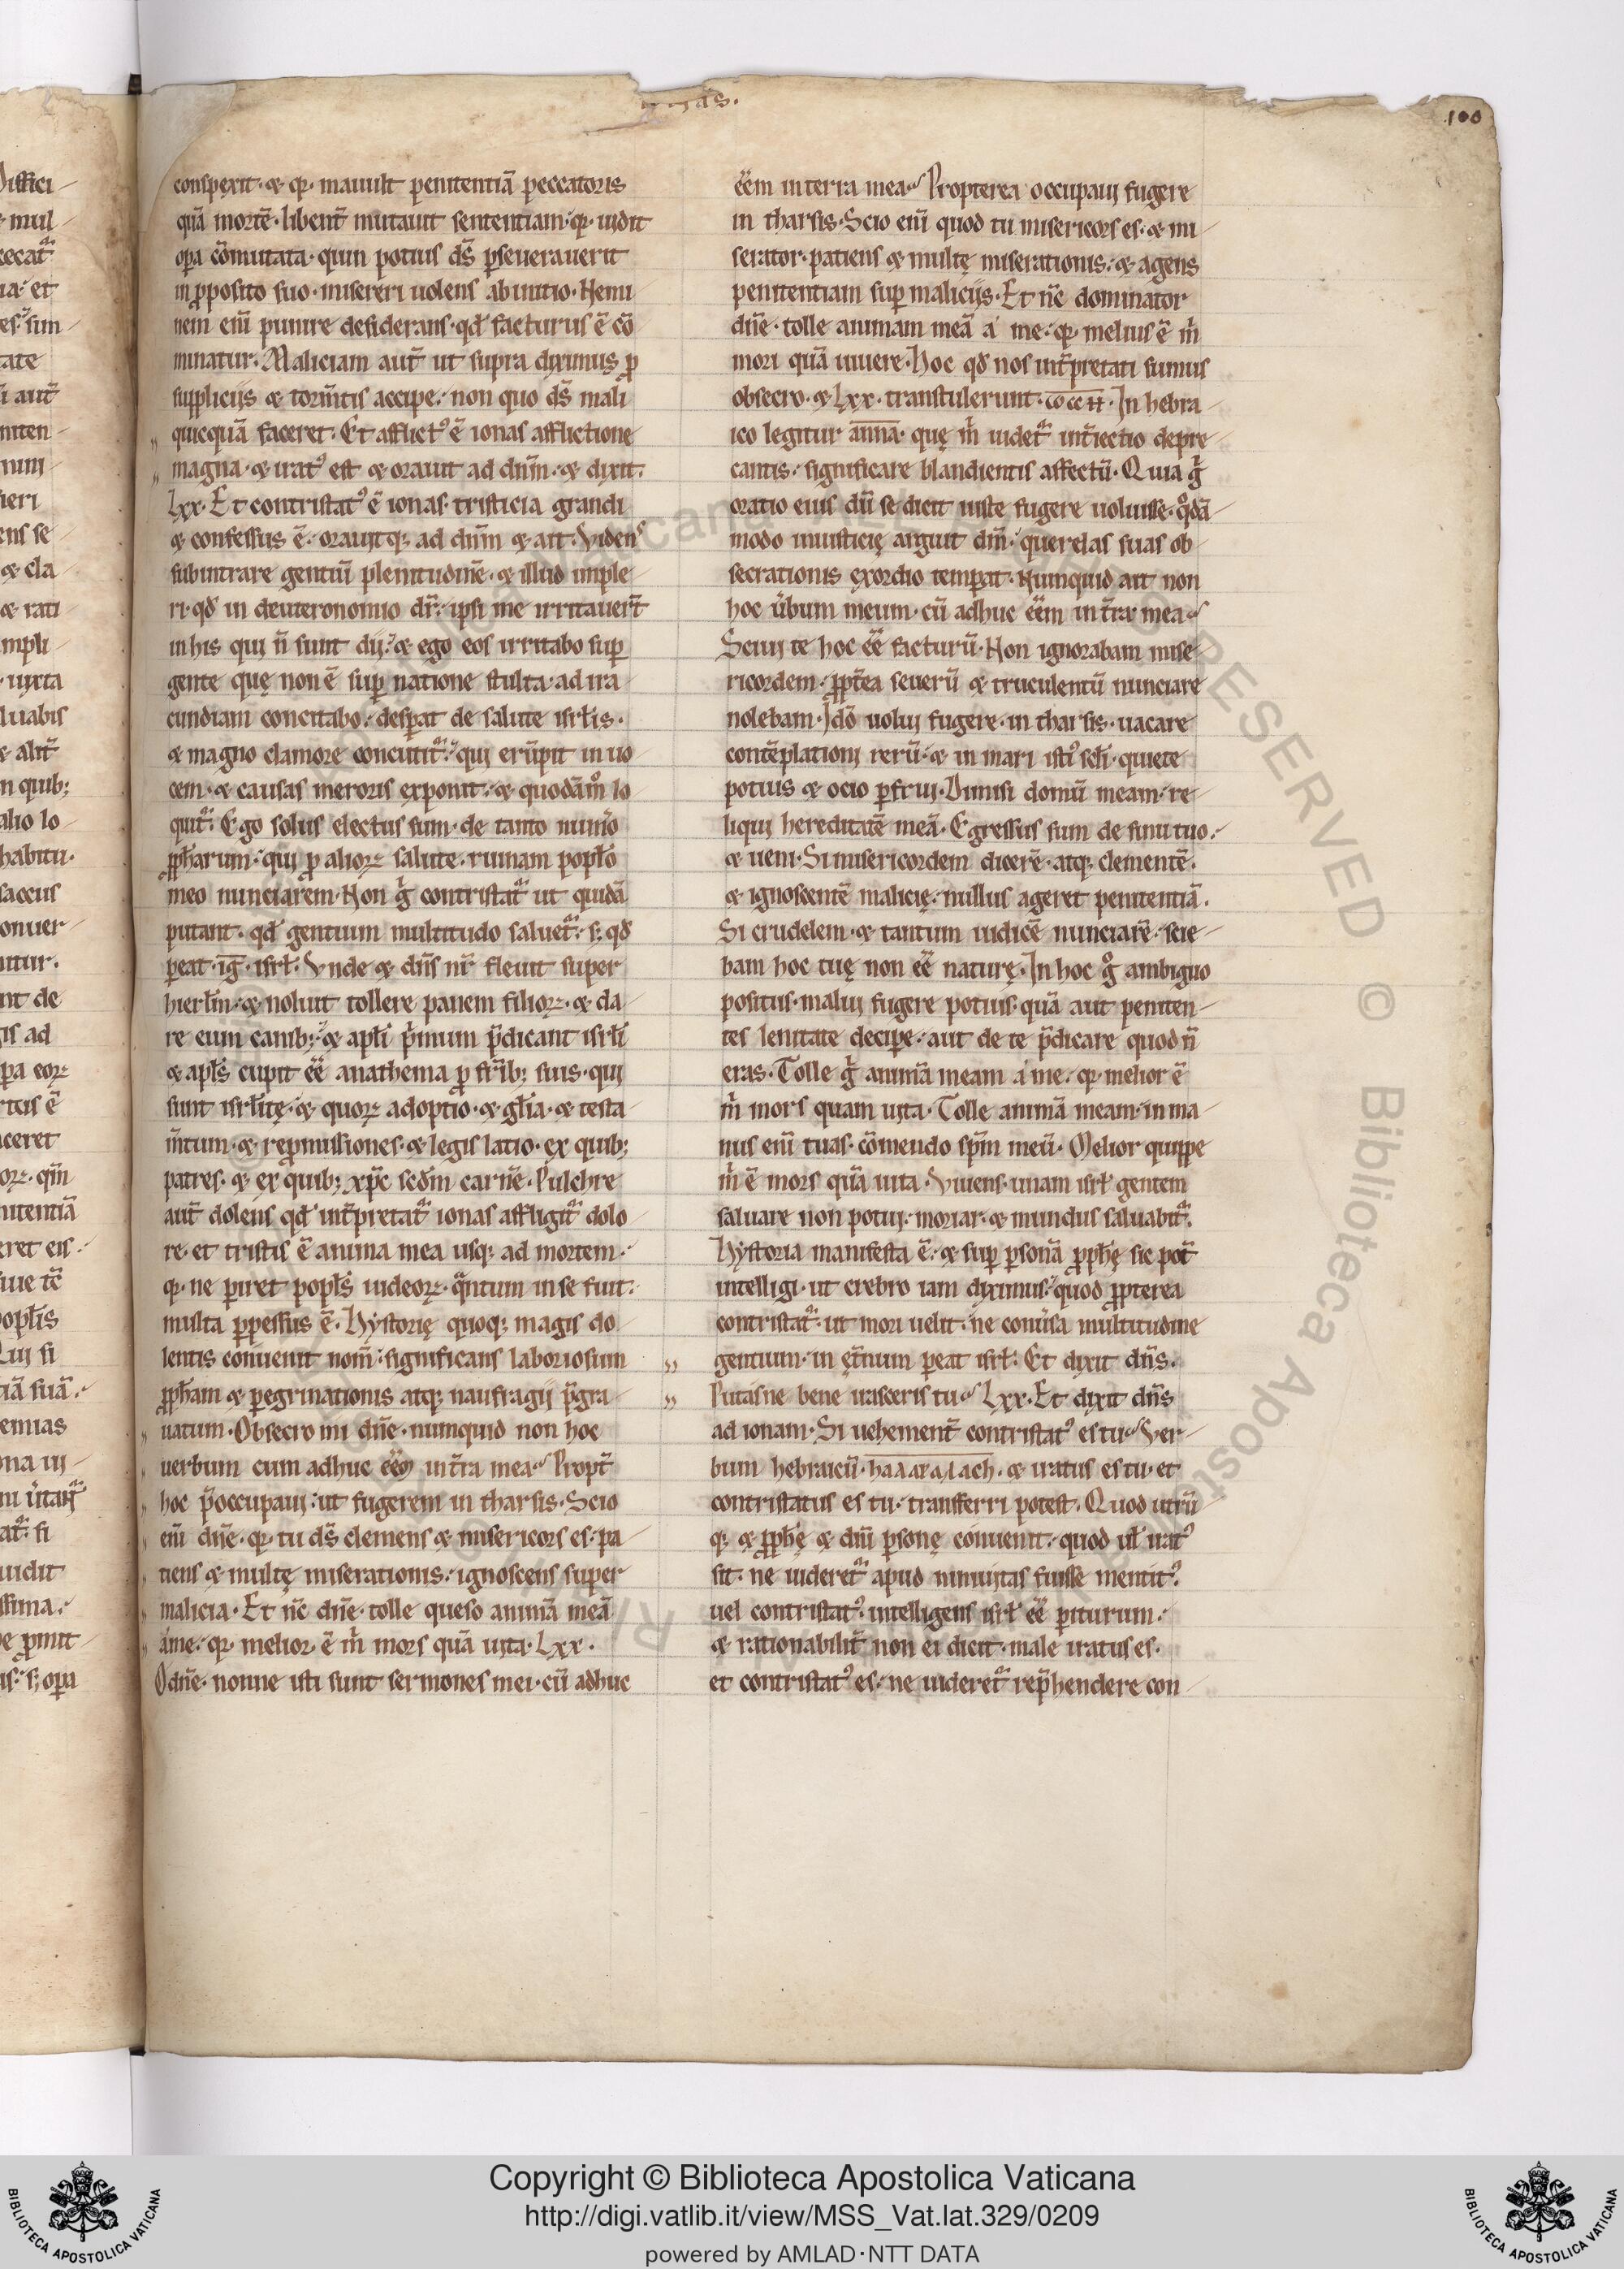 100
conspexit· & qr· mauult penitentiā peccatoris
quā mortē· libent̄ mutauit sententiam· qr· uidit
opa cōmutata· quin potius ds̄ pseuerauerit
in pposito suo· misereri uolens ab initio· Nemi
nem eni̅ punire desiderans· qd̓ facturus ē cō
minatur· Maliciam aut̄ ut supra diximus p
suppliciis & torm̄tis accipe· non quo ds̄ mali
quicquā faceret· Et afflictꝰ ē ionas afflictione
magna· & iratꝰ est & orauit ad dn̄m· & dixit·
Lxx· Et contristatꝰ ē ionas· tristicia grandi
& confessus ē· orauitq; ad dn̄m & ait· Videns
subintrare gentiū plenitudinē· & illud imple
ri· qd̓ in deuteronomio dr̄· ipsi me irritauer̄t
in his qui n̄ sunt dii· & ego eos irritabo sup
gente quę non ē sup natione stulta· ad ira
cundiam concitabo· despat de salute isrl̓is·
& magno clamore concutit̃· qui erūpit in uo
cem· & causas meroris exponit· & quodāmº lo
quit̃· Ego solus electus sum· de tanto num̄o
pph̄arum· qui p alioꝝ salute· ruinam popl̓o
meo nunciarem· Non gͥ contristat̃ ut quidā
putant· qd̓ gentium multitudo saluet̃· s; qd̓
peat· ig̅· isrl̓· Vnde & dn̄s nr̄ fleuit super
hierl̓m· & noluit tollere panem filioꝝ· & da
re eum canib;· & apl̓i pͥmum p̄dicant isrl̓i
& apl̓s cupit eē̄ anathema p fr̄ib; suis· qui
sunt isrl̓itę· & quoꝝ adoptio· & gl̓ia· & testa
m̄tum· & repmissiones· & legis latio· ex quib;
patres· & ex quib; xp̄c scd̓m carnē· Pulchre
aut̄ dolens qd̓ int̄pretat̃ ionas affligit̃ dolo
re· et tristis ē anima mea usq; ad mortem·
qr· ne piret popl̓s iudeoꝝ· qͣntum in se fuit·
multa ppessus ē· Hystorię quoq; magis do
lentis conuenit nom̄· significans laboriosum
pph̄am & pegrinationis atq; naufragii pͣgra
uatum· Obsecro mi dn̄e· numquid non hoc
uerbum cum adhuc eēm in t̄ra mea· Propt̄
hoc p̄occupaui· ut fugerem in tharsis· Scio
eni̅ dn̄e· qr· tu ds̄ clemens & misericors es· pa
tiens & multę miserationis· ignoscens super
malicia· Et nc̄ dn̄e· tolle queso animā meā
a me· qr· melior ē m̄ mors quā uita· Lxx·
O dn̄e· nonne isti sunt sermones mei· cū adhuc
eē̄m in terra mea· Propterea occupaui fugere
in tharsis· Scio eni̅ quod tu misericors es· & mi
serator· patiens & multę miserationis· & agens
penitentiam sup maliciis· Et nc̄ dominator
dn̄e· tolle animam meā a me· qr· melius ē m̄
mori quā uiuere· Hoc qd̓ nos int̄pretati sumus
obsecro· & Lxx· transtulerunt· In hebra
ico legitur anna· quę m̄ uidet̃ int̄iectio depre
cantis· significare blandientis affectū· Quia gͥ
oratio eius dū se dicit iuste fugere uoluisse· qͦdā
modo iniusticię arguit dm̄· querelas suas ob
secrationis exordio tempat· Numquid ait non
hoc u̓bum meum· cū adhuc eē̄m in t̄ra mea
Sciui te hoc eē̄ facturū· Non ignorabam mise
ricordem· ppt̄ea seuerū & truculentū nunciare
nolebam· Ideo uolui fugere· in tharsis· uacare
contēplationi rerū· & in mari istiꝰ scl̓i· quiete
potius & ocio pfrui· Dimisi domū meam· re
liqui hereditatē meā· Egressus sum de sinu tuo·
& ueni· Si misericordem dicerē· atq; clementē·
& ignoscentē malicię· nullus ageret penitentiā·
Si crudelem· & tantum iudicē nunciarē· scie
bam hoc tuę non eē̄ naturę· In hoc gͦ ambiguo
positus· malui fugere potius· quā aut peniten
tes lenitate decipe· aut de te p̄dicare quod n̄
eras· Tolle gͥ animā meam a me· qr· melior ē
m̄ mors quam uita· Tolle animā meam· in ma
nus eni̅ tuas· cōmendo spm̄ meū· Melior quippe
m̄ ē mors quā uita· Viuens· unam isrl̓ gentem
saluare non potui· moriar· & mundus saluabit̃·
Hystoria manifesta ē· & sup psonā pph̄ę sic pot̄
intelligi· ut crebro iam diximus· quod ppterea
contristat̃· ut mori uelit· ne conu̓sa multitudine
gentium· in ęt̄num peat isrl̓· Et dixit dn̄s·
Putasne bene irasceris tu· Lxx· Et dixit dn̄s
ad ionam· Si uehement̄ contristatꝰ es tu· Ver
bum hebraicū· & iratus es tu· et
contristatus es tu· transferri potest· Quod utrū
q; & pph̄ę & dni̅ psonę conuenit· quod ul̓ iratꝰ
sit· ne uideret̃ apud niniuitas fuisse mentitꝰ
uel contristatꝰ· intelligens isrl̓ eē̄ piturum·
& rationabilit̄ non ei dicit· male iratus es·
et contristatꝰ es· ne uideret̃ rep̄hendere con
Copyright © Biblioteca Apostolica Vaticana
http://digi.vatlib.it/view/MSS_Vat.lat.329/0209
powered by AMLAD·NTT DATA